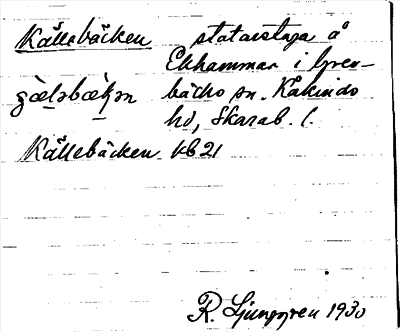 Källebäcken statarstuga å
Ekhammar i Grev-
bäcks sn. Kåkinds
hd, Skarab. l.
Källebäcken kb 21
R. Ljunggren 1930